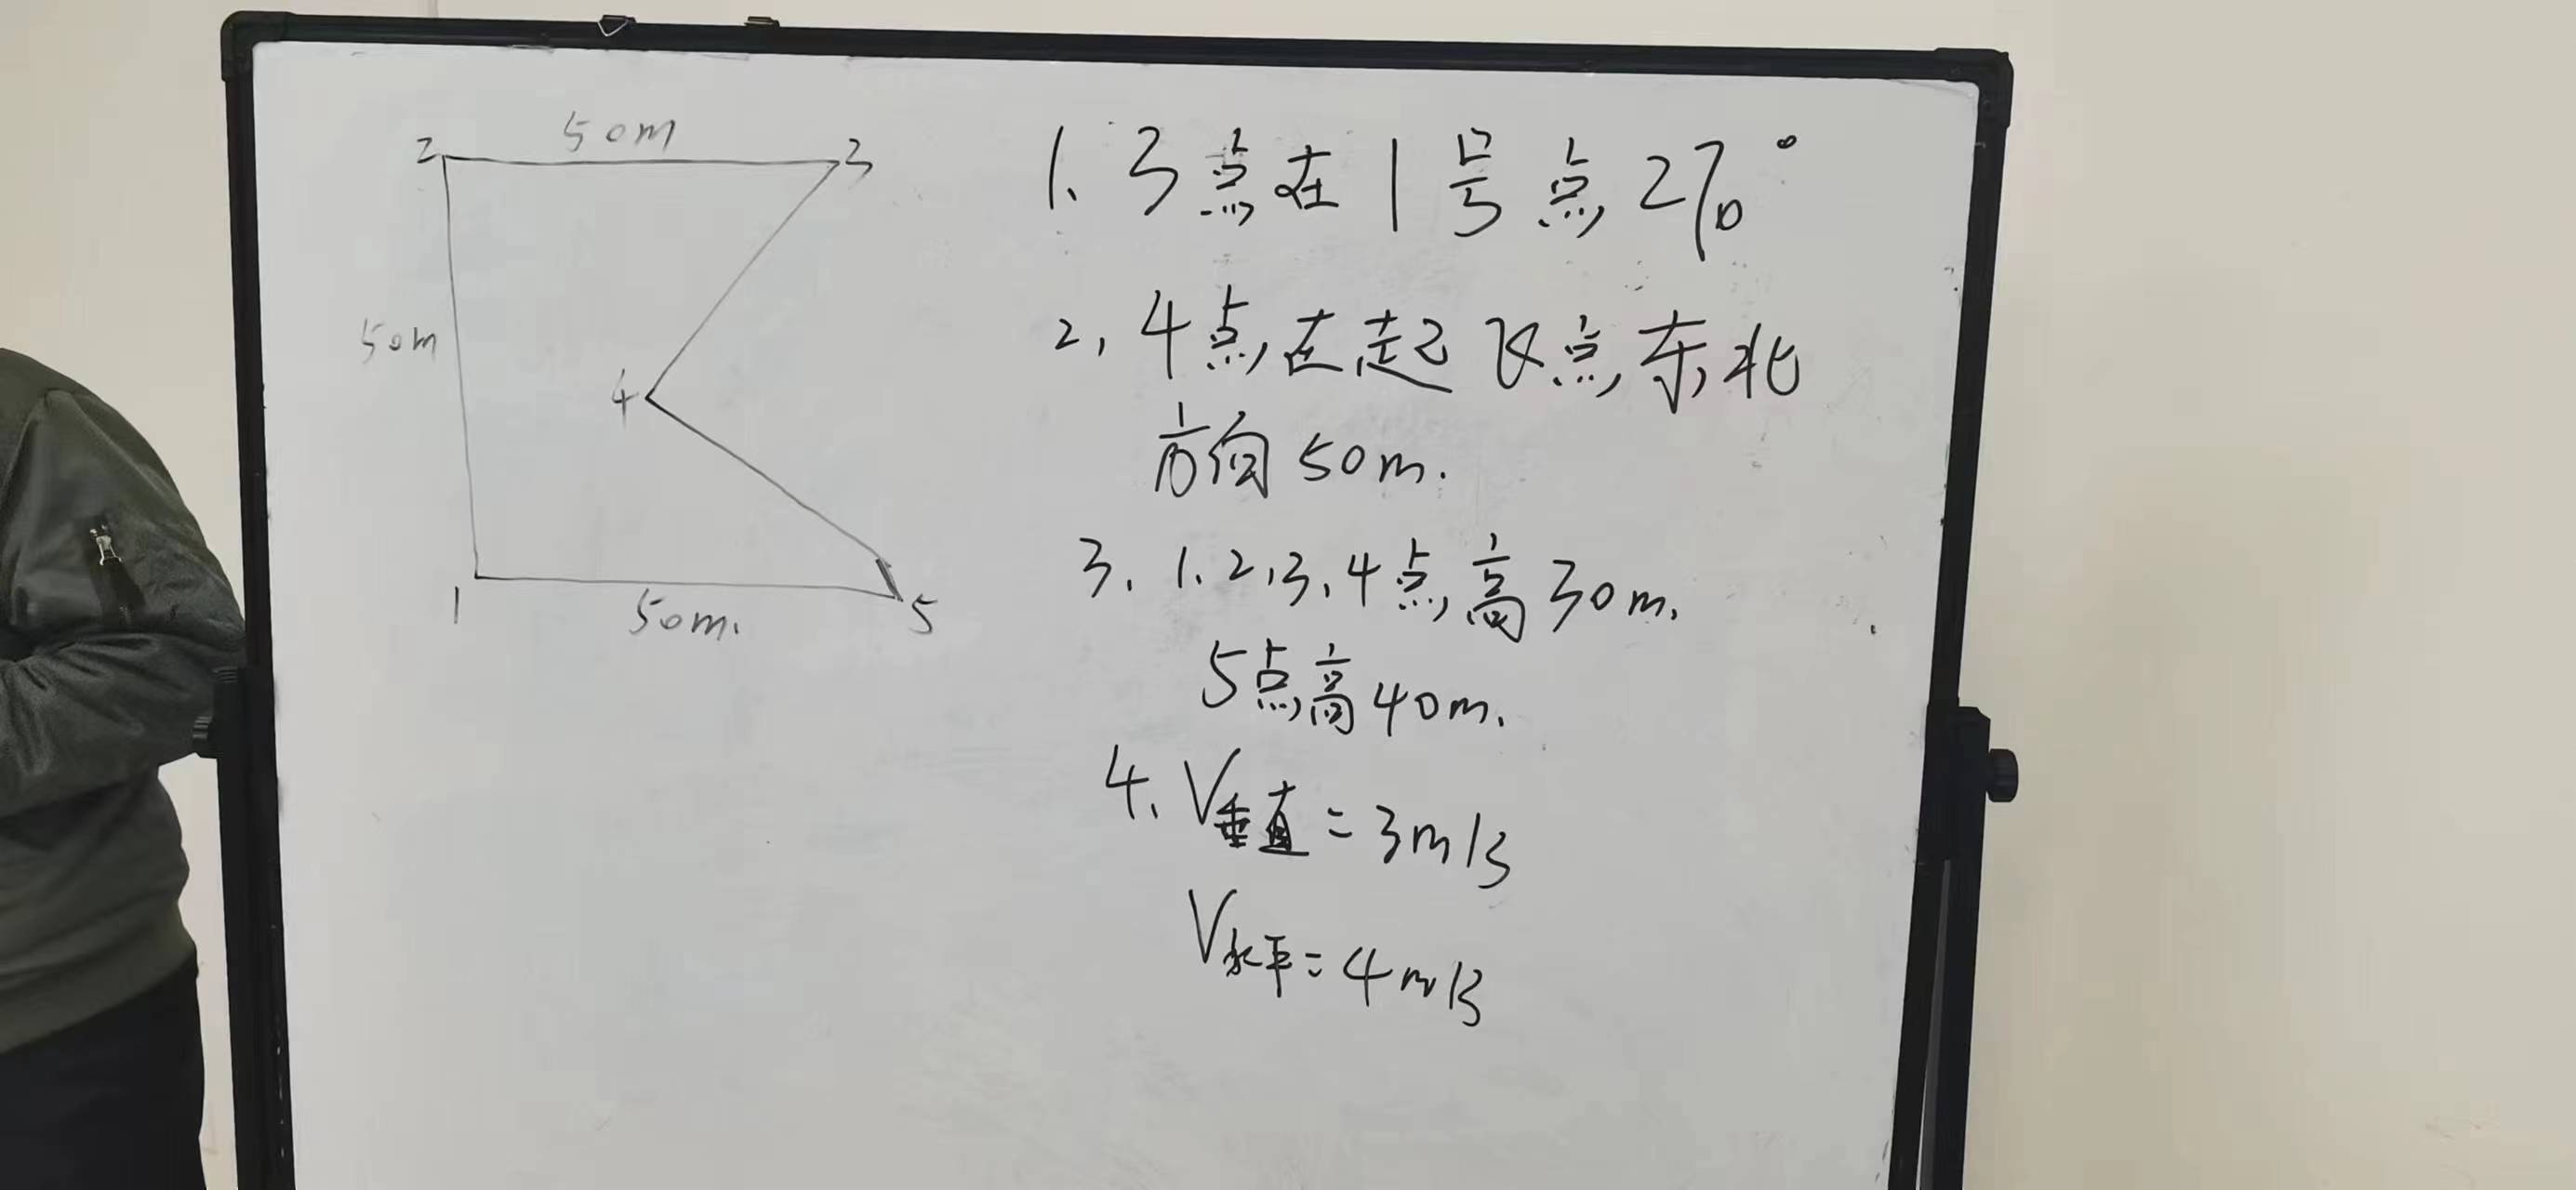 2
50m
3
50m
4
1
50m.
5
1、3点在1号点270°
2，4点在起飞点东北
方向50m.
3、1.2,3、4点高30m、
5点高40m、
4、V垂直=3m/s
V水平=4m/s